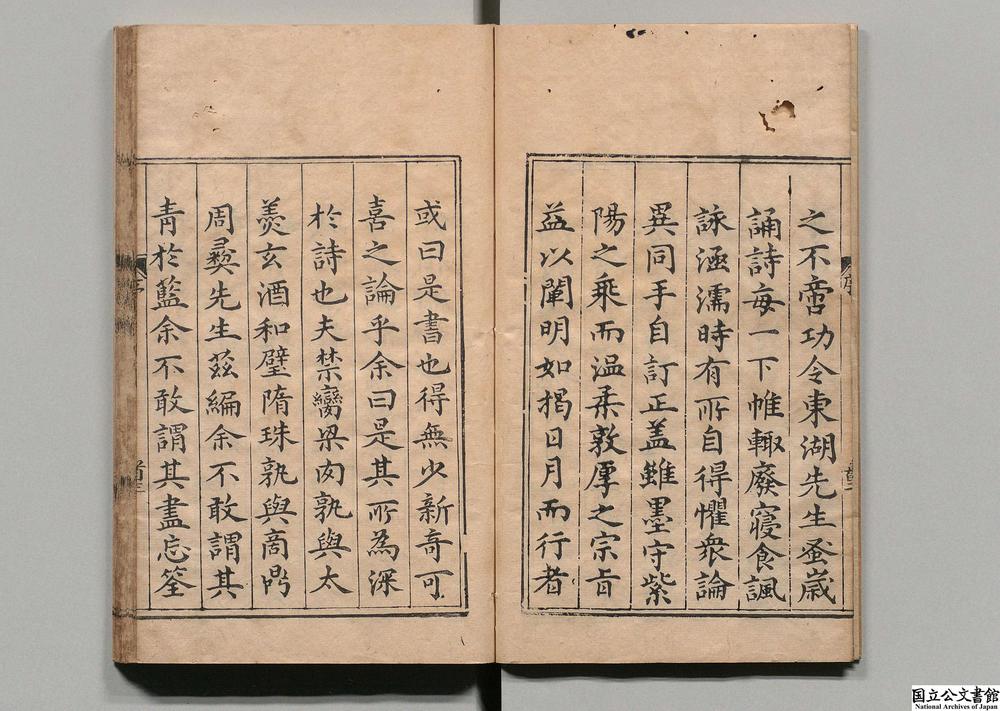 之不啻功令東湖先生蚤歲
誦詩每一下帷輙廢寢食諷
詠涵濡時有所自得懼衆論
異同手自訂正蓋雖墨守紫
陽之乘而温柔敦厚之宗旨
益以闡明如揭日月而行者
序
或曰是書也得無少新奇可
喜之論乎余曰是其所為深
於詩也夫禁臠梁肉孰與太
羹玄酒和璧隋珠孰與商鼎
周彛先生茲編余不敢謂其
青於藍余不敢謂其盡忘筌
序
国立公文書館
National Archives of Japan